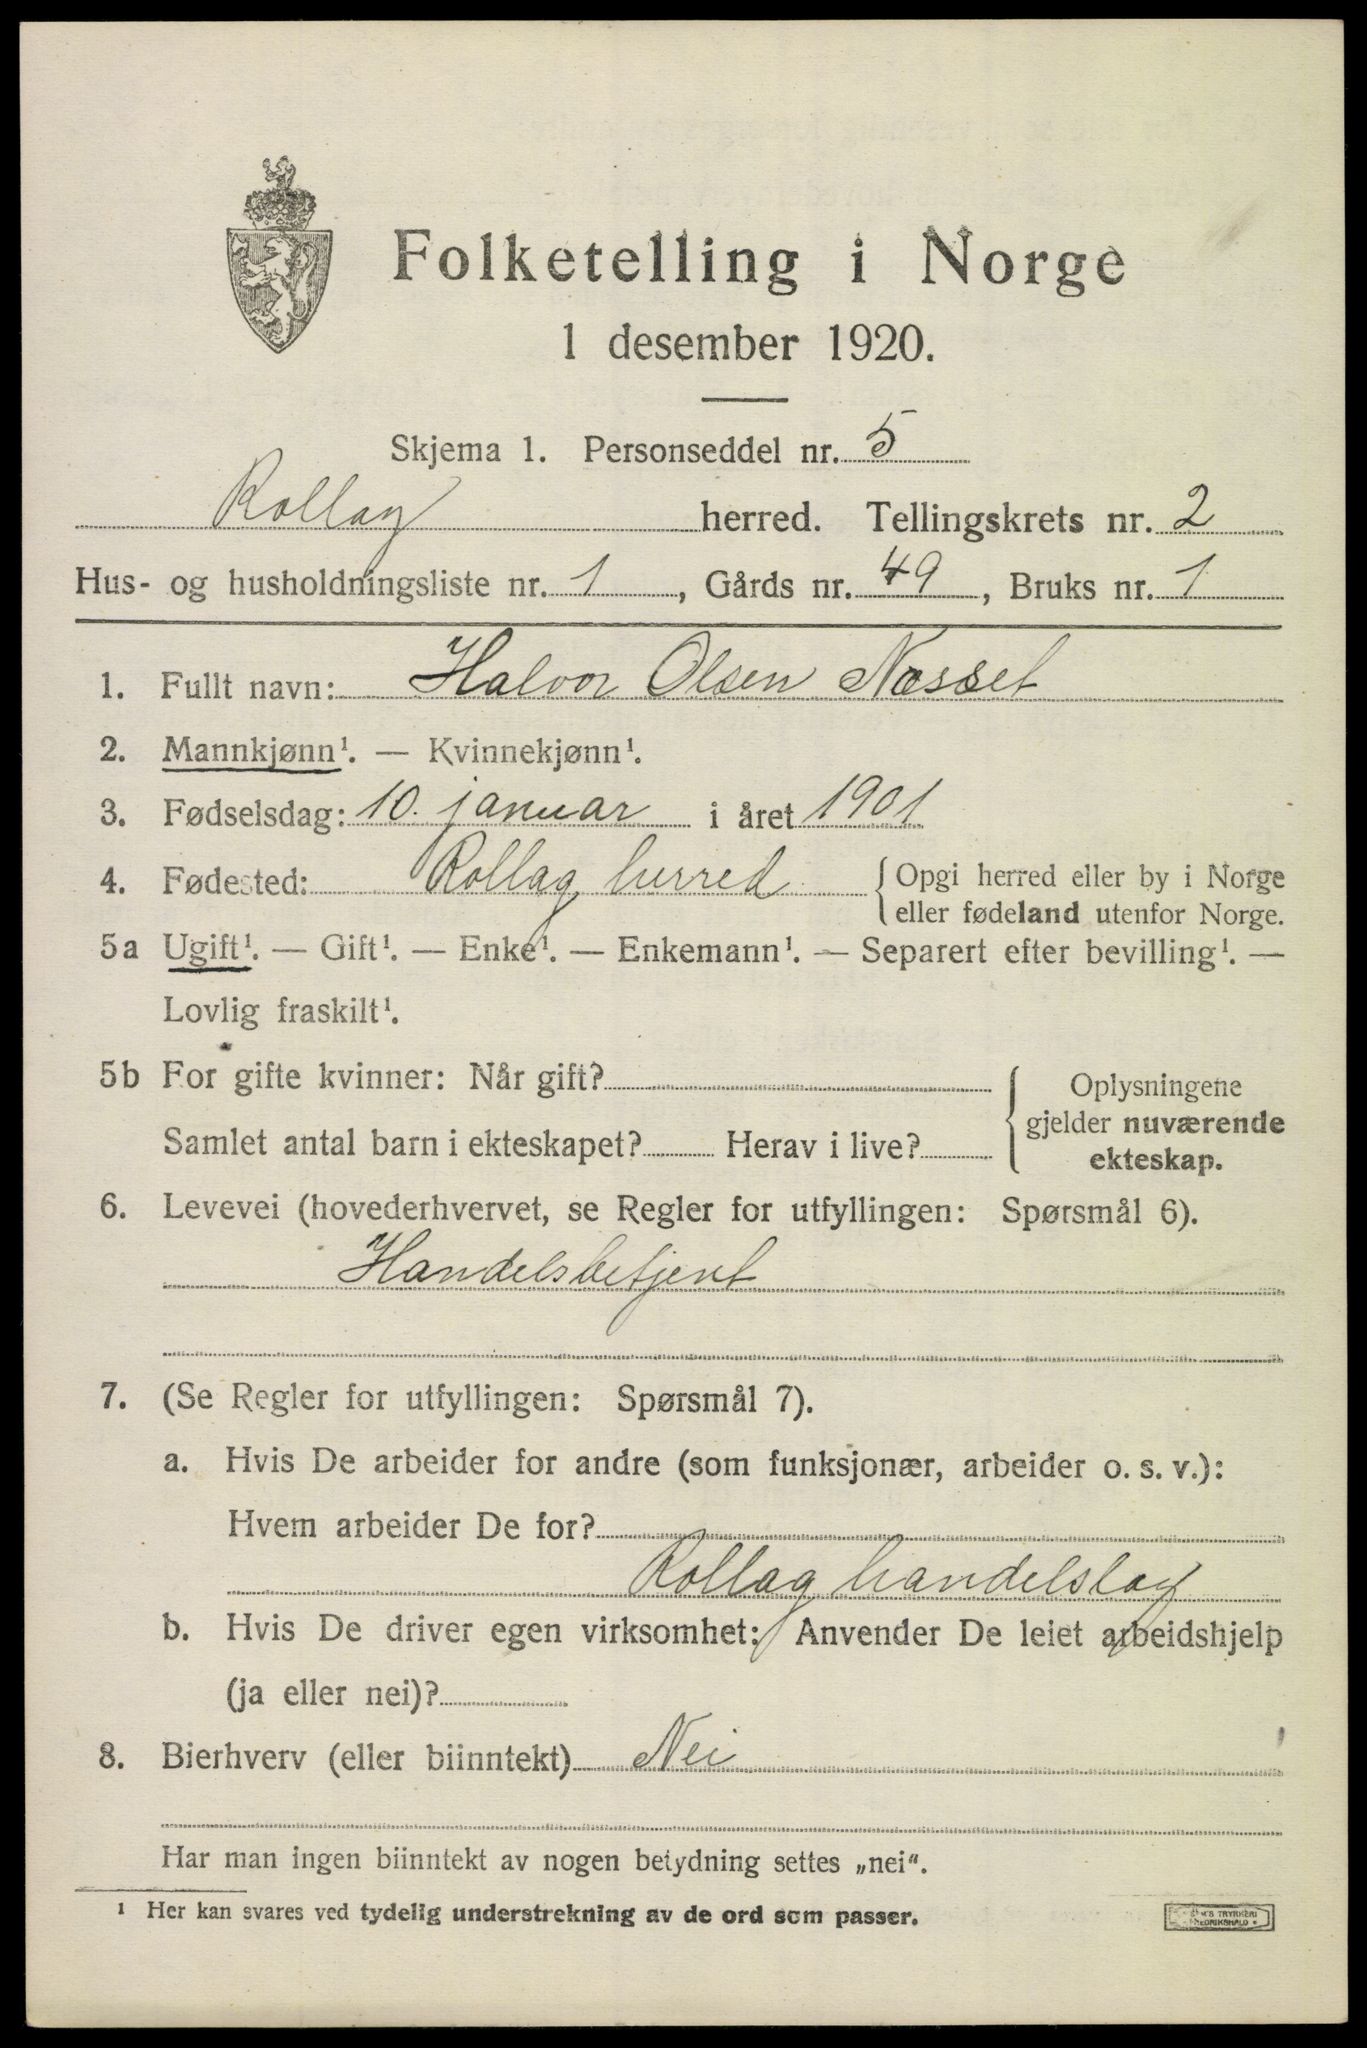 Folketelling i Norge
1 desember 1920.
Skjema 1. Personseddel nr. 5
Rollag herred. Tellingskrets nr. 2
Hus- og husholdningsliste nr. 1, Gårds nr. 49, Bruks nr. 1
1. Fullt navn: Halvor Olsen Næsset
2. Mannkjønn¹. — Kvinnekjønn¹.
3. Fødselsdag: 10. januar i året 1901
4. Fødested: Rollag herred { Opgi herred eller by i Norge
eller fødeland utenfor Norge.
5a Ugift¹. — Gift¹. — Enke¹. — Enkemann¹. — Separert efter bevilling¹. —
Lovlig fraskilt¹.
5b For gifte kvinner: Når gift?
Samlet antal barn i ekteskapet? Herav i live?
Oplysningene
gjelder nuværende
ekteskap.
6. Levevei (hovederhvervet, se Regler for utfyllingen: Spørsmål 6).
Handelsbetjent
7. (Se Regler for utfyllingen: Spørsmål 7).
a. Hvis De arbeider for andre (som funksjonær, arbeider o. s. v.):
Hvem arbeider De for?
Rollag handelslag
b. Hvis De driver egen virksomhet: Anvender De leiet arbeidshjelp
(ja eller nei)?
8. Bierhverv (eller biinntekt) Nei
Har man ingen biinntekt av nogen betydning settes „nei“.
¹ Her kan svares ved tydelig understrekning av de ord som passer.
TRYKKERI